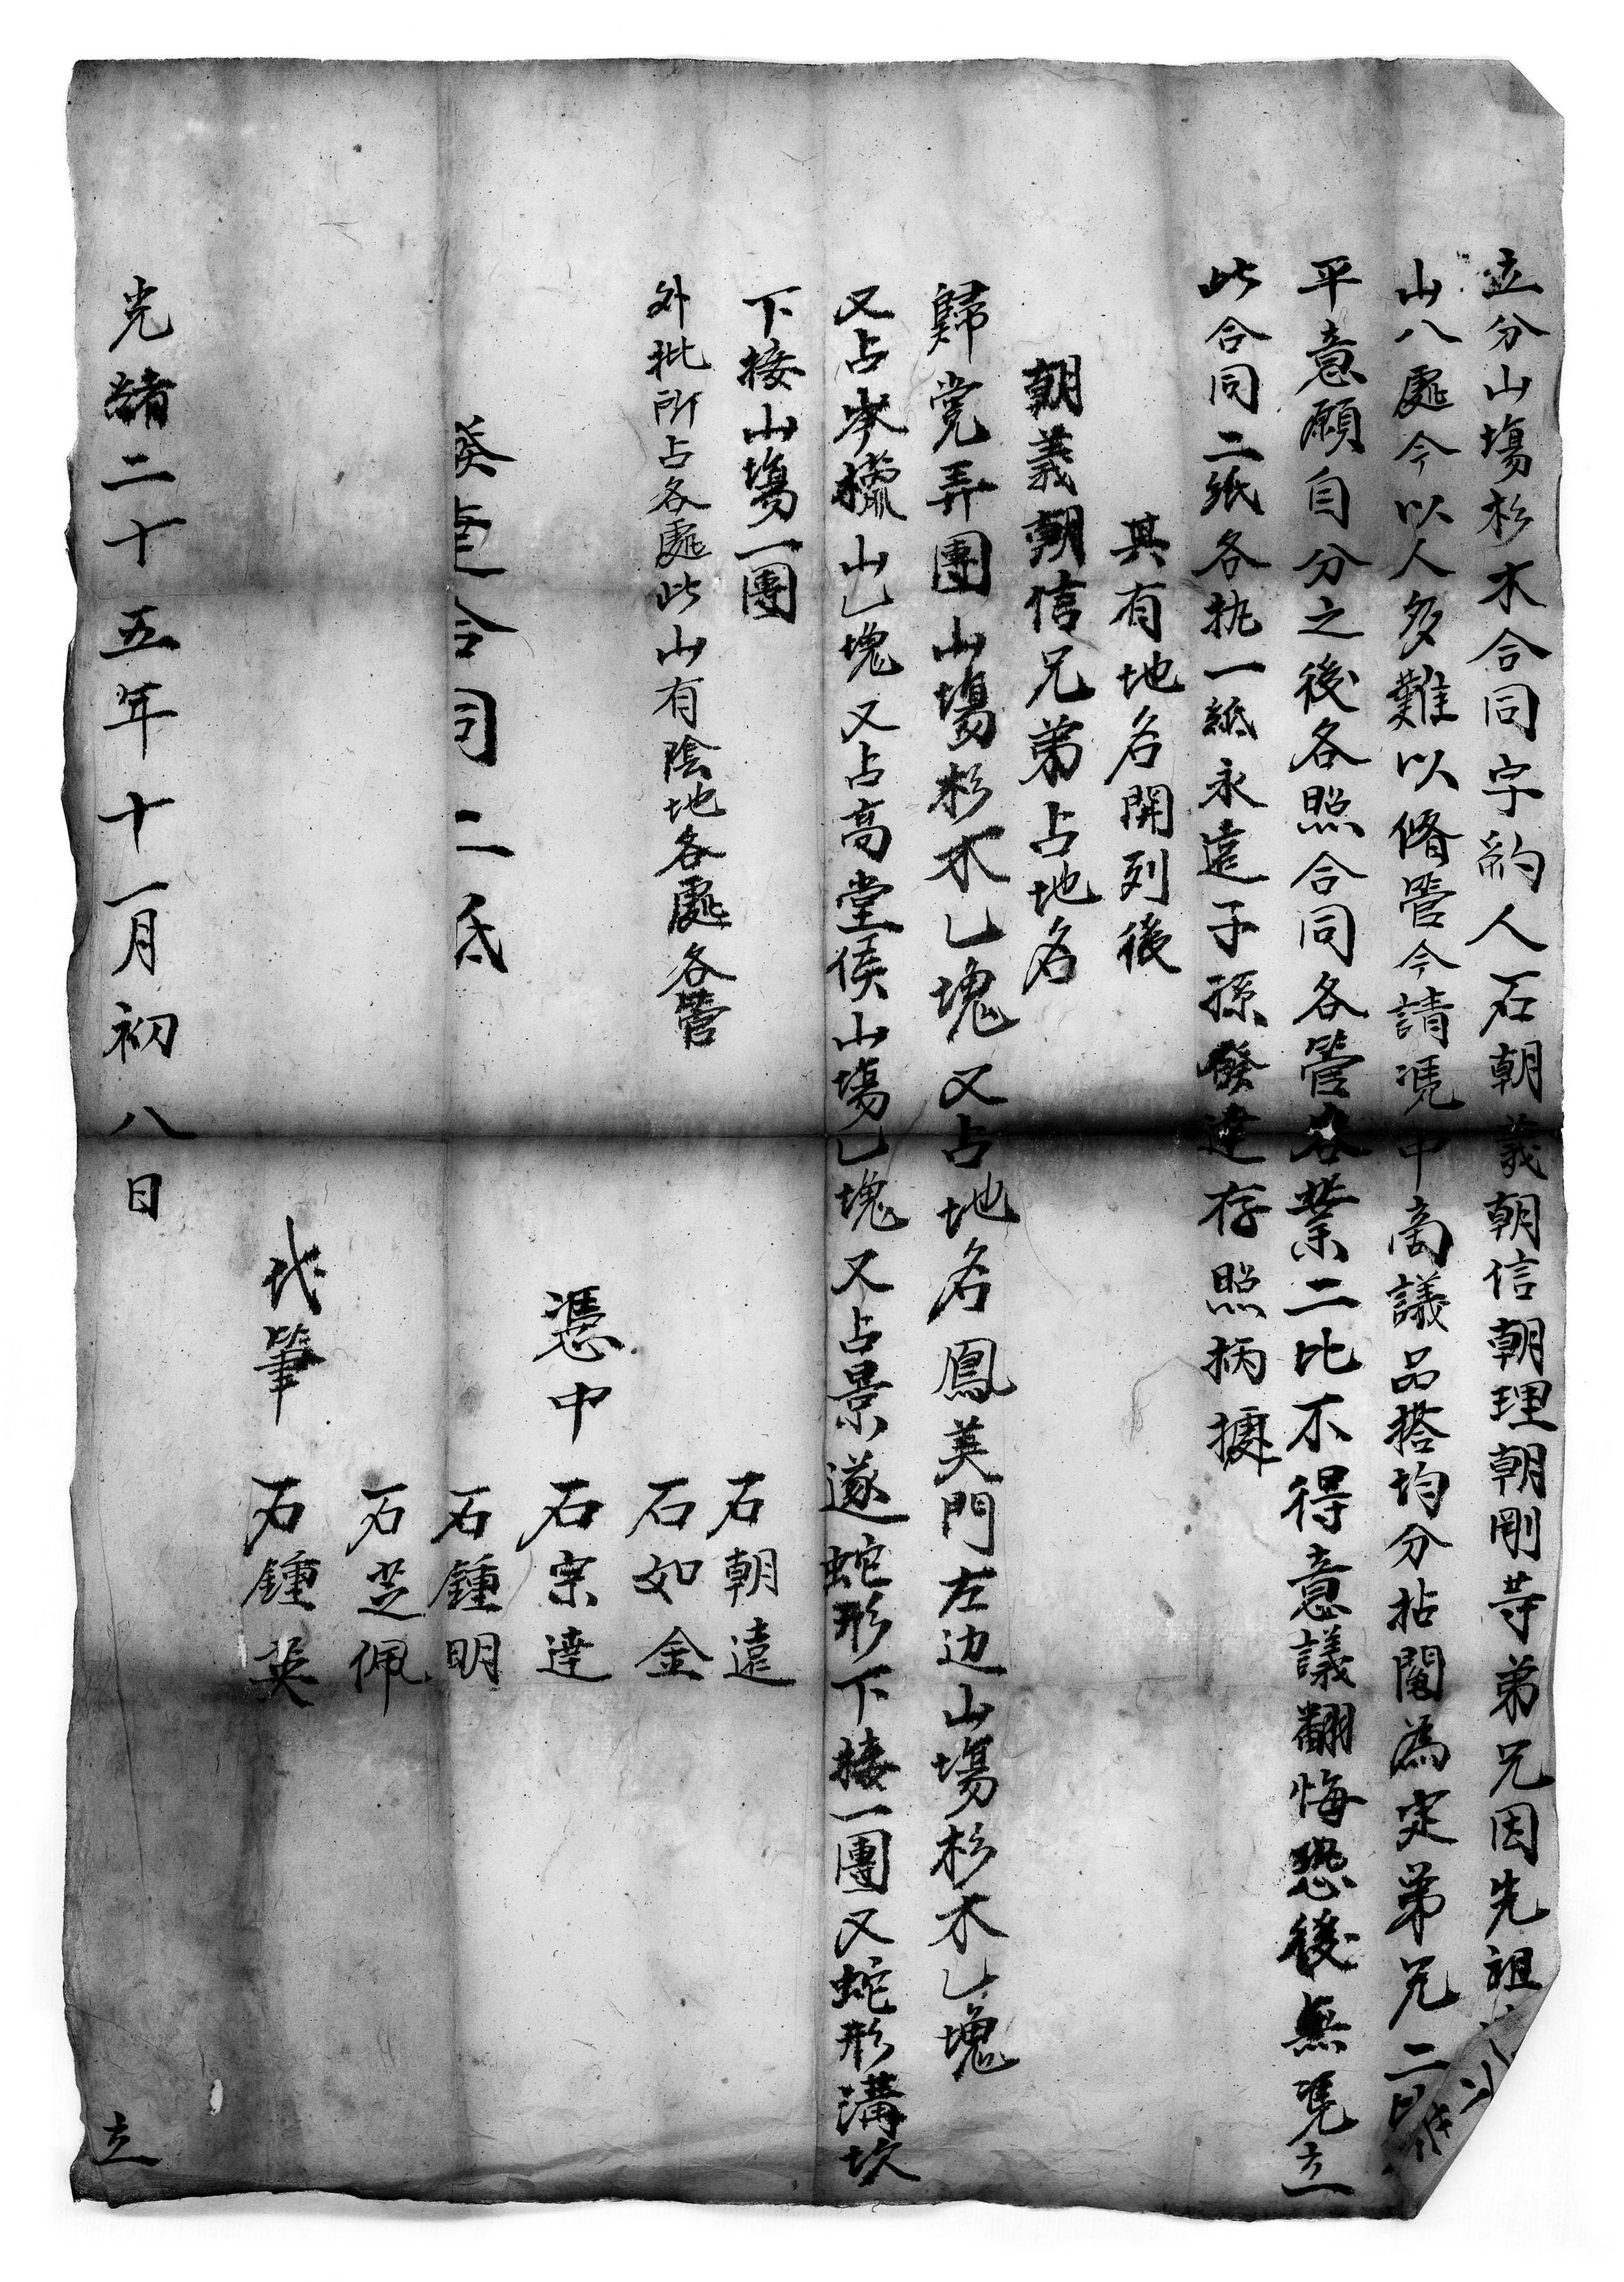 立分山塲杉木合同字約人石朝義朝信朝理朝剛等弟兄因先祖
山八處今以人多難以脩管今請凴中啇議品搭均分拈䦰為定弟兄二
平意願自分之後各照合同各管各業二比不得意議翻悔恐後無凴立
此合同二紙各执一紙永遠子孫發達存照柄據
其有地名開列後
朝義朝信兄弟占地名
歸党弄團山塲杉木乙塊又占地名鳳美門左边山塲杉木乙塊
又占岑欑山乙塊又占高堂傼山塲乙塊又占景遂蛇形下接一團又蛇形溝坎
下接山塲一團
外批所占各處此山有陰地各處各管
發達合同二紙
石朝遠
石如金
憑中 石宗達
石鍾明
石芝佩
代筆 石鍾英
光緒二十五年十一月初八日 立